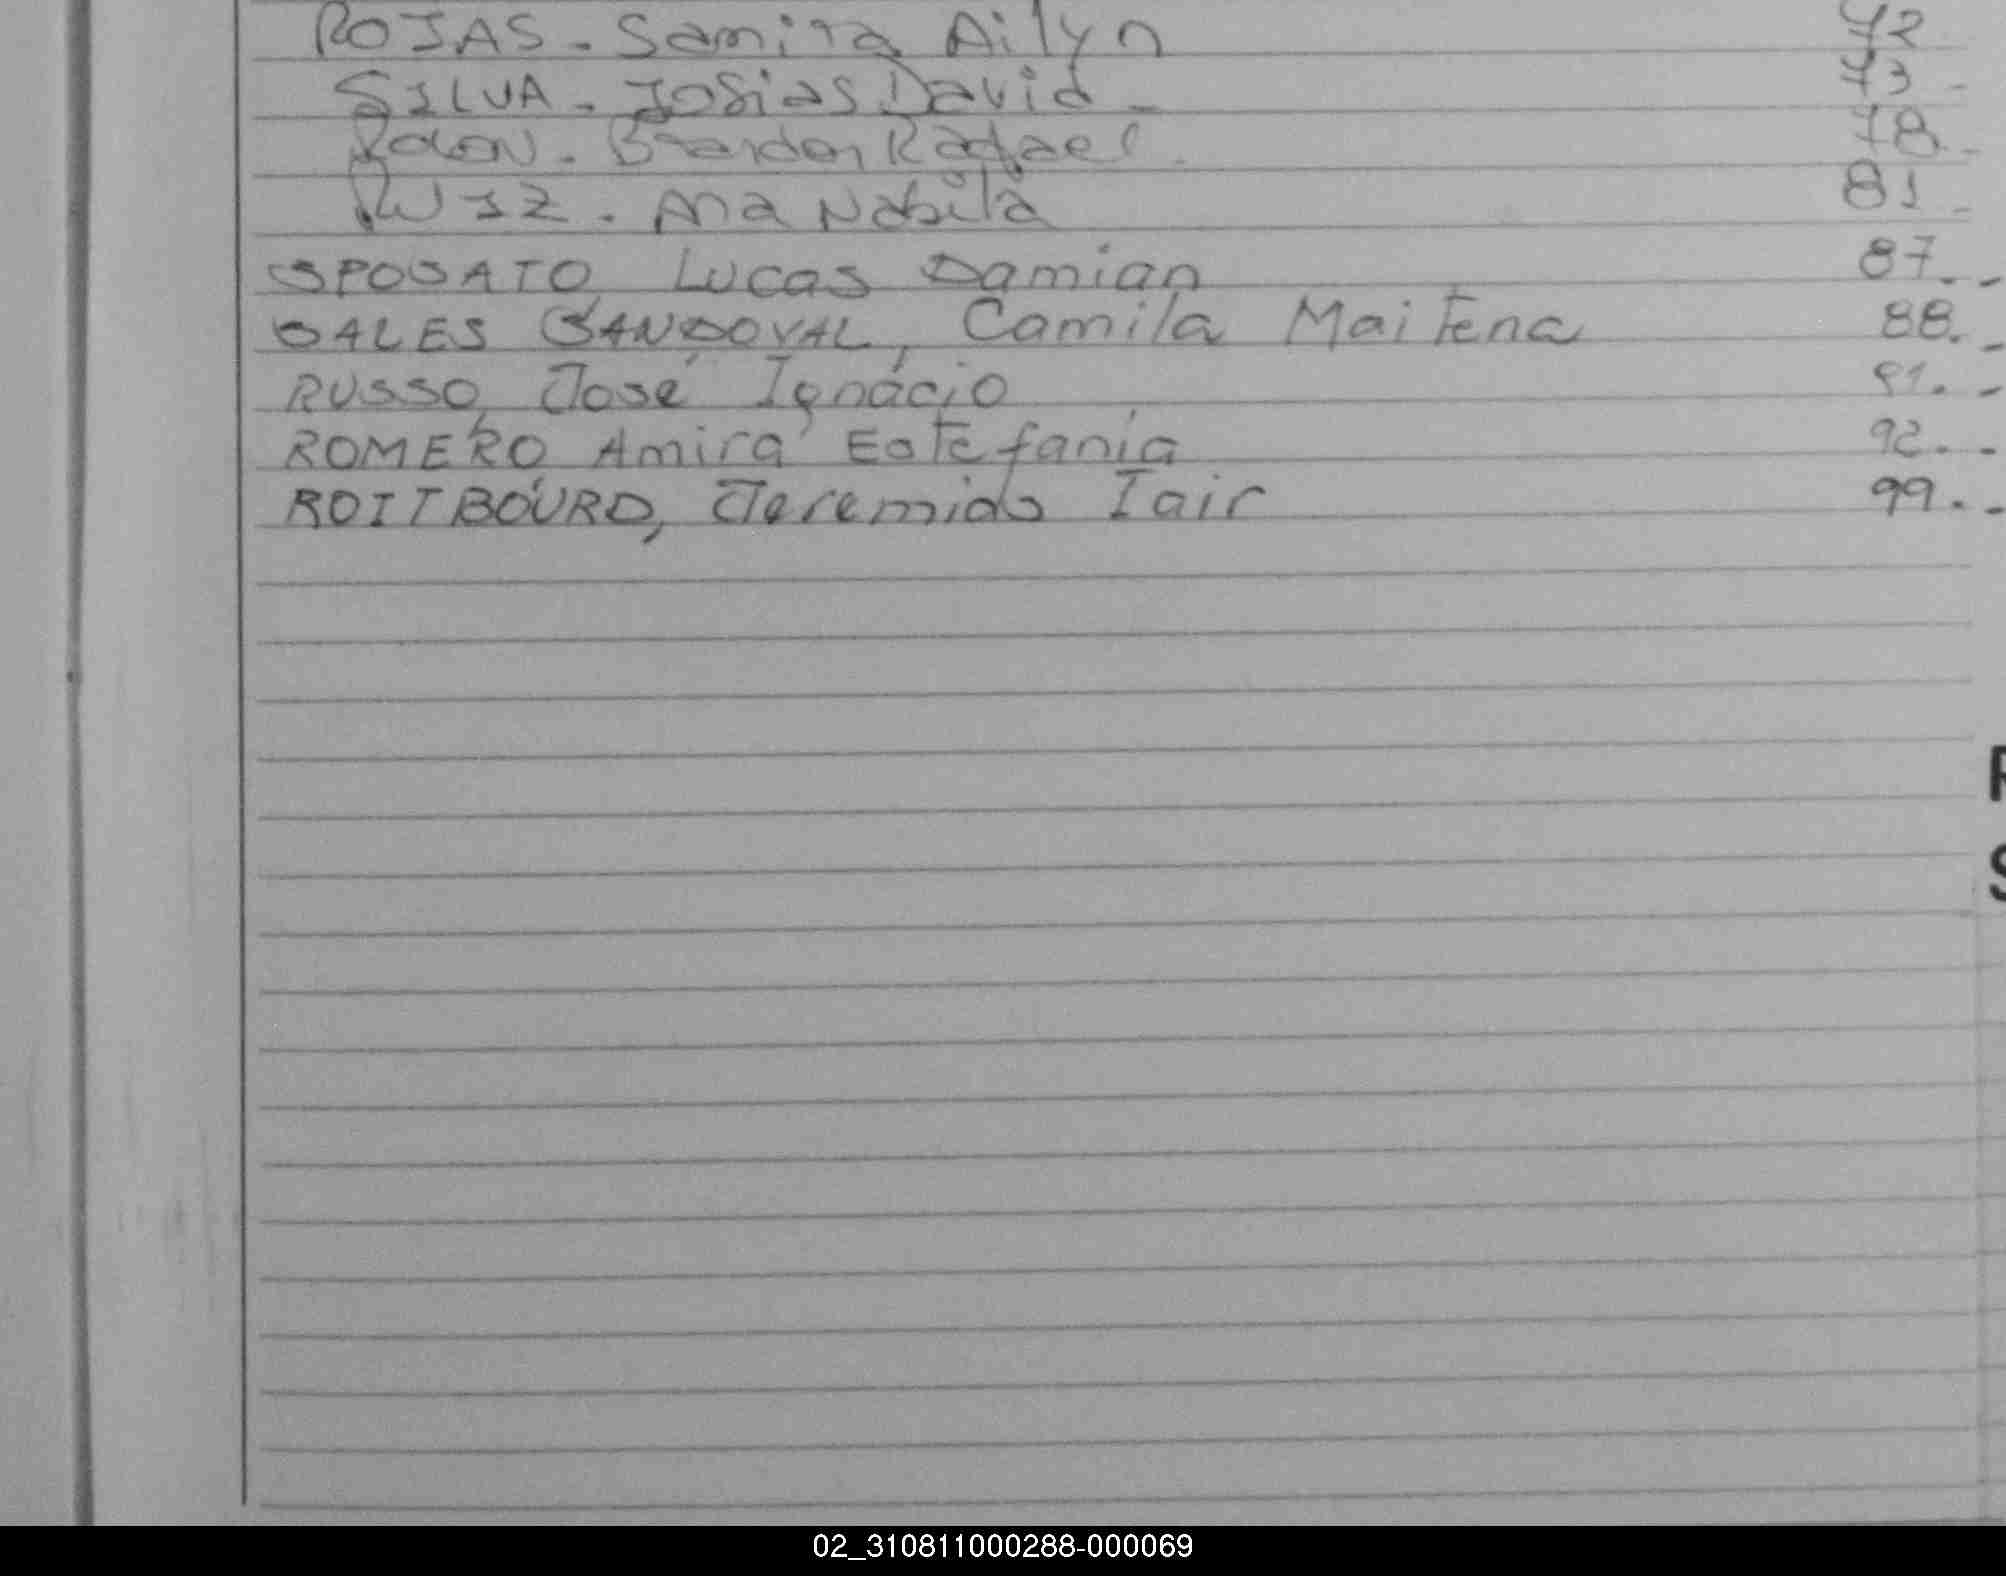 ROJAS - Samira Ailyn 72
SILVA - Josias David - 73 -
Rolon - Brandon Rafael. 78 -
RUIZ - Ana Nabila 81 -
SPOSATO, Lucas Damian 87. -
SALES SANDOVAL, Camila Maitena 88. -
RUSSO, José Ignacio 91. -
ROMERO, Amira Estefanía 92. -
ROITBOURD, Jeremias Iair 99. -
R
S
02_310811000288-000069